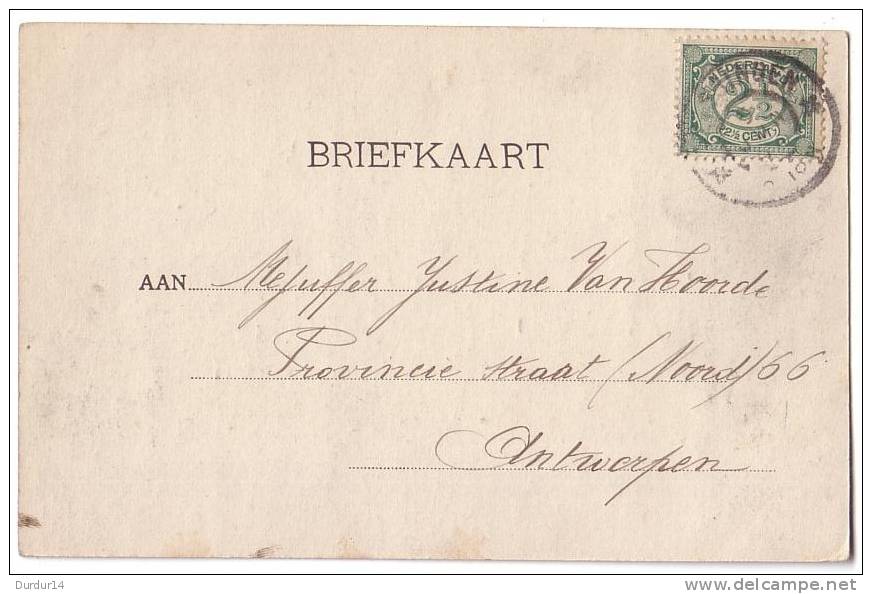 NEDERLAND
2½
(2½ CENT)
BRIEFKAART
AAN Mejuffer Justine Van Hoorde
Provincie straat (Noord) 66
Antwerpen
Durdur14
www.delcampe.net